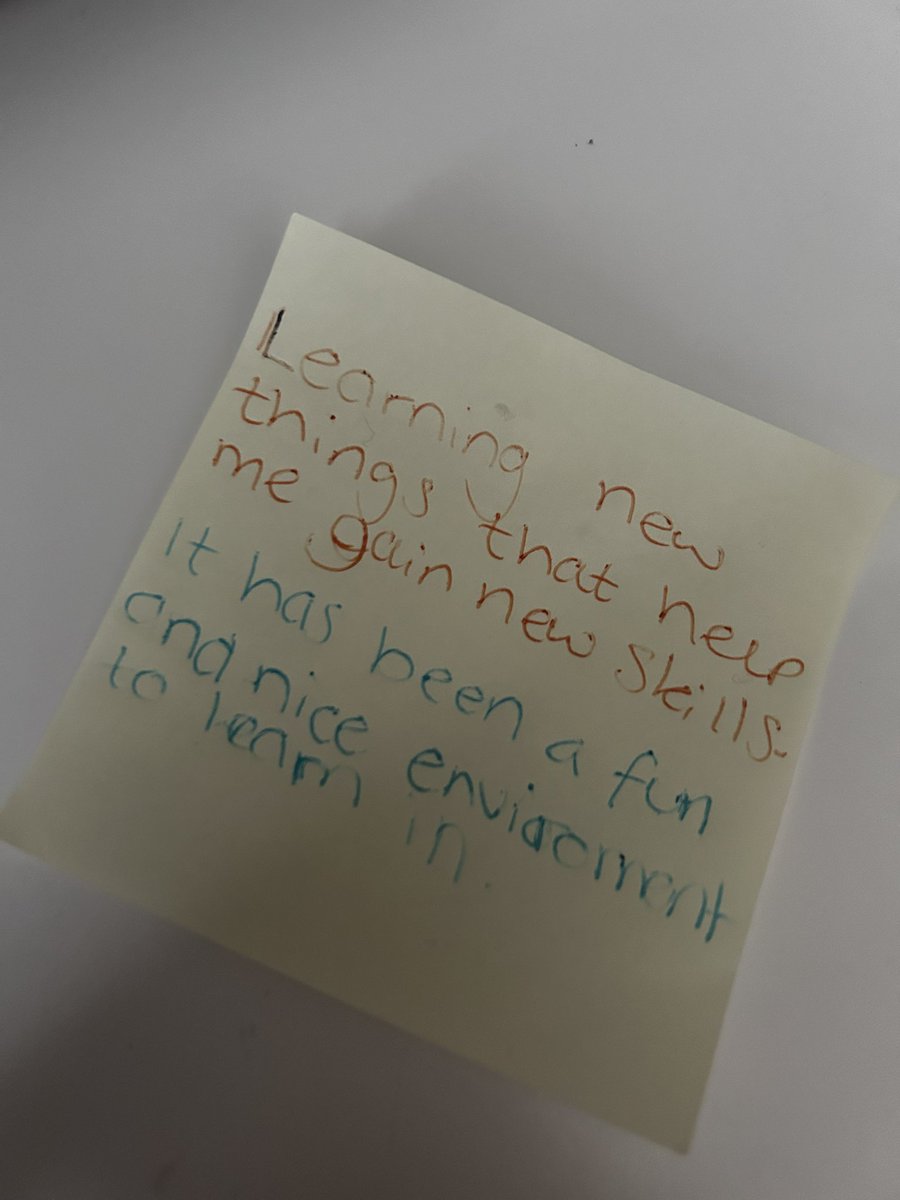 Learning new
things that help
me gain new skills.
It has been a fun
and nice enviroment
to learn in.